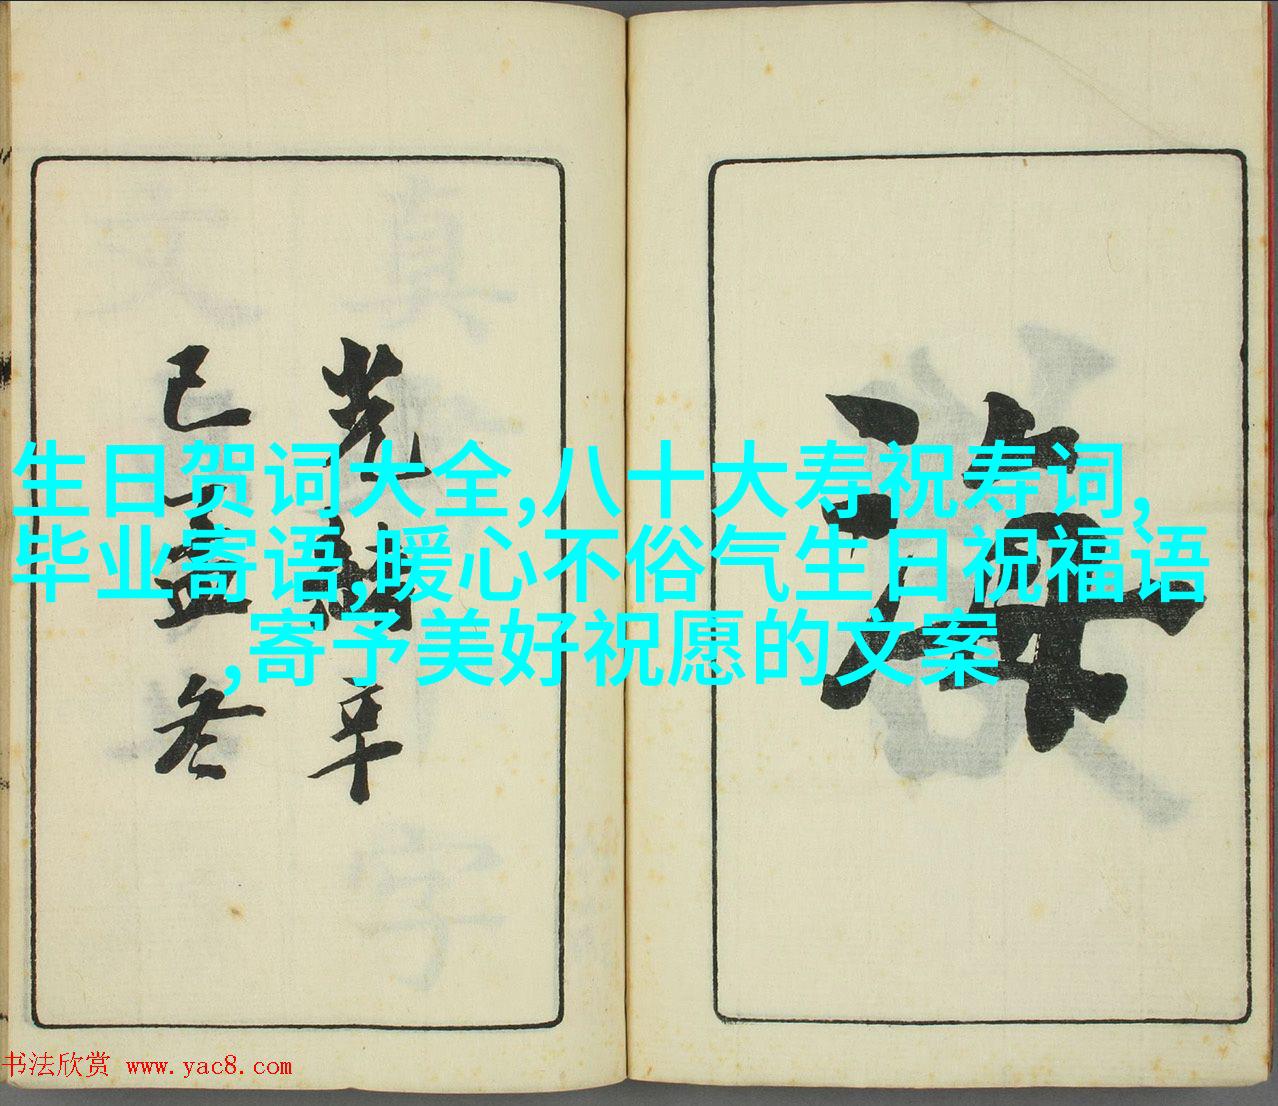 生日贺词大全,八十大寿祝寿词,
毕业寄语,暖心不俗气生日祝福语
,寄予美好祝愿的文案
海
光緒年
己孟冬
书法欣赏 www.yac8.com